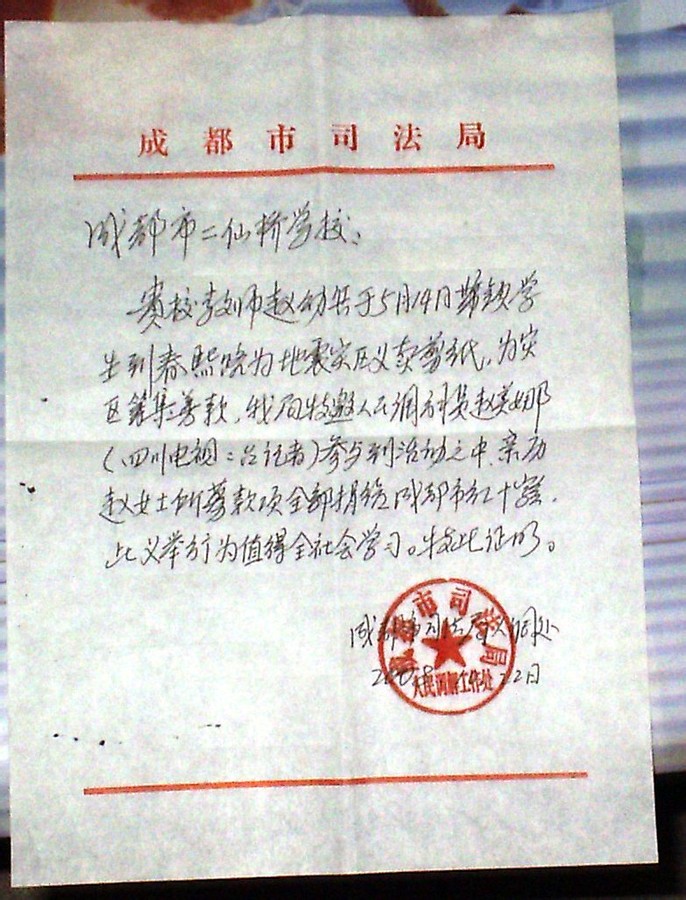 成都市司法局
成都市二仙桥学校：
贵校老师赵 于5月14日带领学
生到春熙路为地震灾区义卖剪纸，为灾
区筹集善款，我局特邀人民调解员赵美娜
（四川电视二台记者）参与到活动之中，亲历
赵女士所募款项全部捐给成都市红十字会，
此义举行为值得全社会学习。特此证明。
成都市司法局人调处
22日
成都市司法局
人民调解工作处